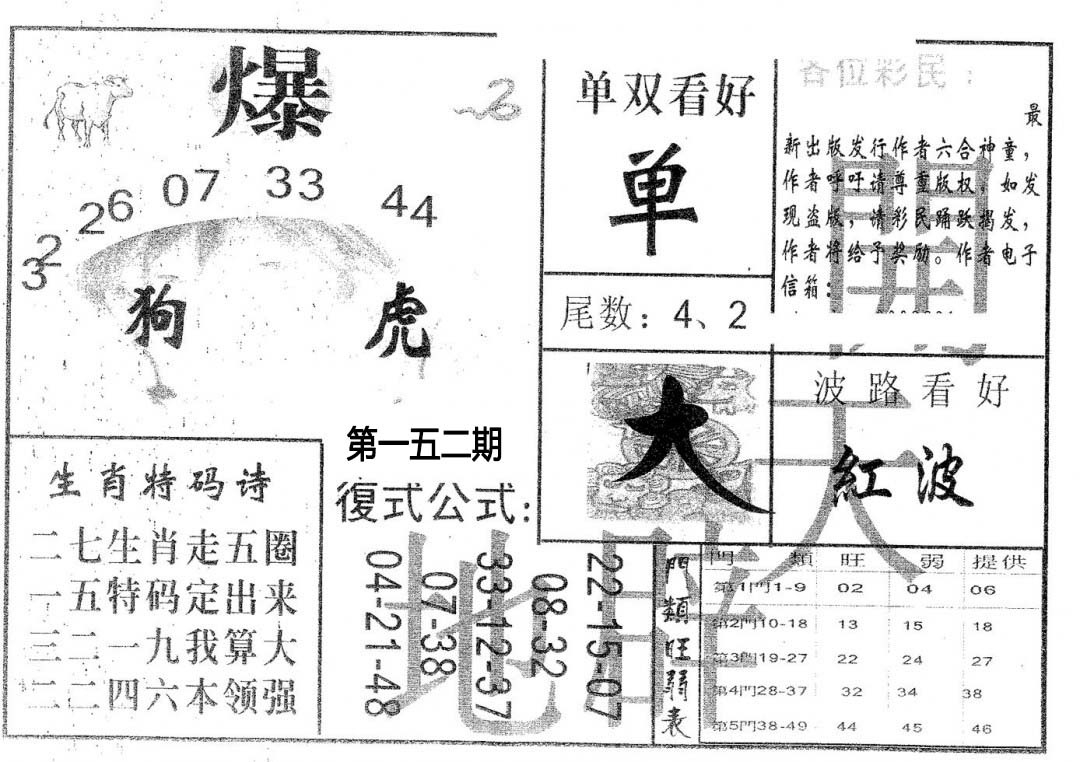 爆
32
26
07
33
44
狗
虎
单双看好
单
尾数：4、2
各位彩民：
最
新出版发行作者六合神童，
作者呼吁请尊重版权，如发
现盗版，请彩民踊跃揭发，
作者将给予奖励。作者电子
信箱：
大
波路看好
紅波
生肖特码诗
二七生肖走五圈
一五特码定出来
三二一九我算大
二二四六本领强
第一五二期
復式公式：
22-15-07
08-32
33-12-37
07-38
04-21-48
門類旺弱表
門類 旺 弱 提供
第1門1-9 02 04 06
第2門10-18 13 15 18
第3門19-27 22 24 27
第4門28-37 32 34 38
第5門38-49 44 45 46